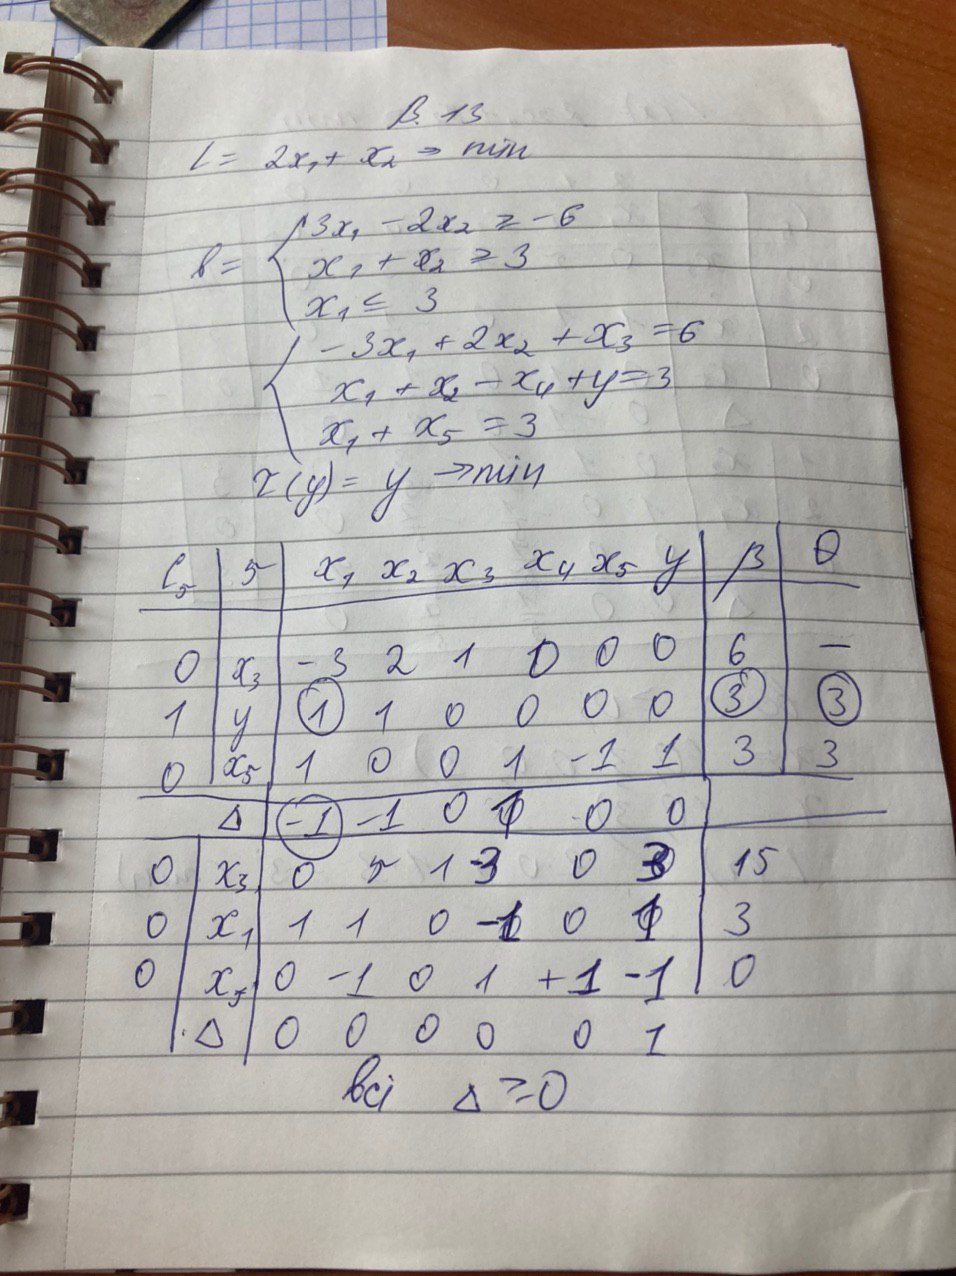 В. 13
L = 2x₁ + x₂ → min
b = { 3x₁ - 2x₂ ≥ -6
x₁ + x₂ ≥ 3
x₁ ≤ 3
{ -3x₁ + 2x₂ + x₃ = 6
x₁ + x₂ - x₄ + y = 3
x₁ + x₅ = 3
τ(y) = y → min
x₁ x₂ x₃ x₄ x₅ y β θ
0 x₃ -3 2 1 0 0 0 6 —
1 y 1 1 0 0 0 0 3 3
0 x₅ 1 0 0 1 -1 1 3 3
Δ -1 -1 0 1 0 0
0 x₃ 0 5 1 -3 0 3 15
0 x₁ 1 1 0 -1 0 1 3
0 x₅ 0 -1 0 1 +1 -1 0
Δ 0 0 0 0 0 1
всі Δ ≥ 0